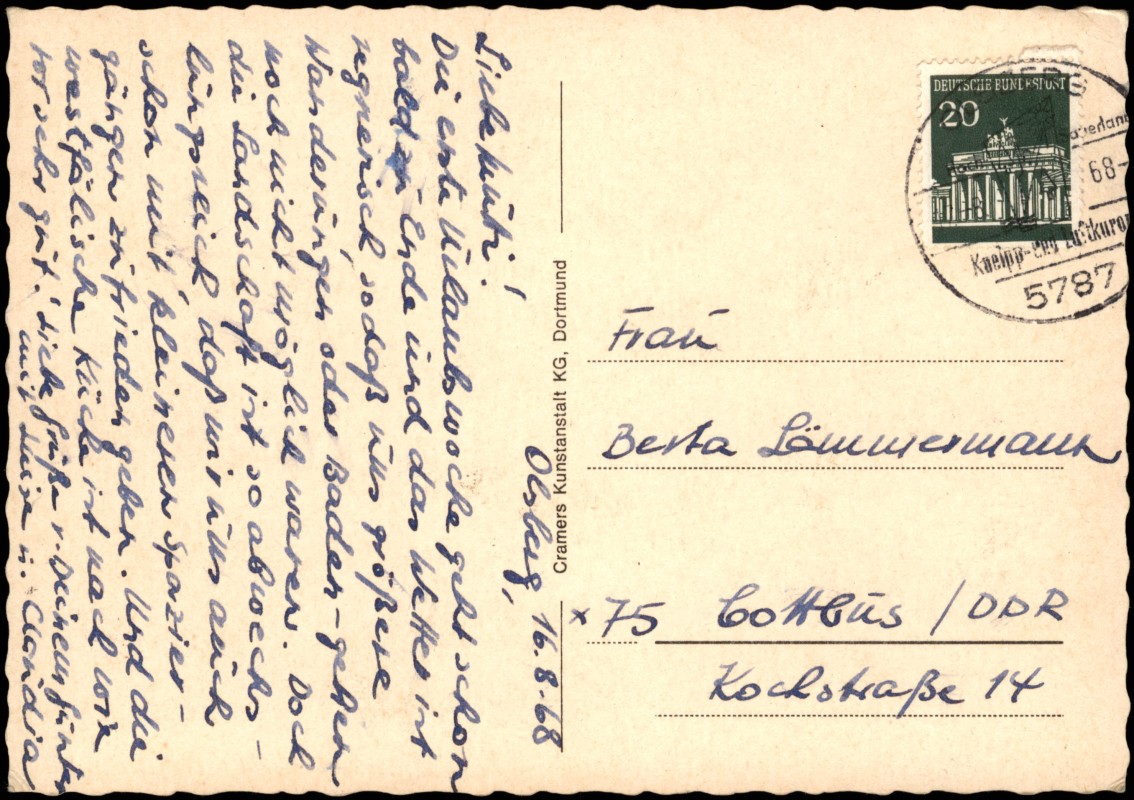 Olsberg, 16.8.68
Liebe Mutti!
Die erste Urlaubswoche geht schon
bald zu Ende und das Wetter ist
regnerisch, sodaß uns größere
Wanderungen oder Baden-gehen
noch nicht möglich waren. Doch
die Landschaft ist so abwechs-
lungsreich, daß wir uns auch
schon mit kleineren Spazier-
gängen zufrieden geben. Und die
westfälische Küche ist nach wie
vor sehr gut. Liebe Grüße v. Deinem Günter
mit Luise u. Claudia
Cramers Kunstanstalt KG, Dortmund
DEUTSCHE BUNDESPOST
20
68-
Kneipp- und Luftkuror
5787
Frau
Berta Lämmermann
x 75 Cottbus / DDR
Kochstraße 14